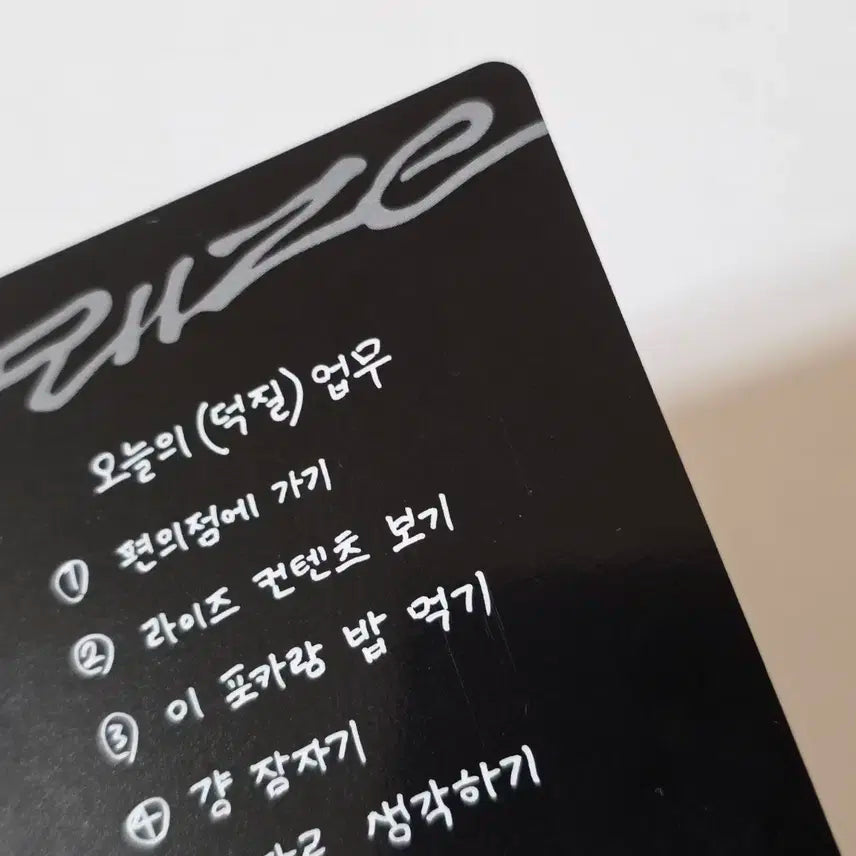 RIIZE
오늘의(덕질)업무
① 편의점에 가기
② 라이즈 컨텐츠 보기
③ 이 포카랑 밥 먹기
④ 걍 잠자기
생각하기